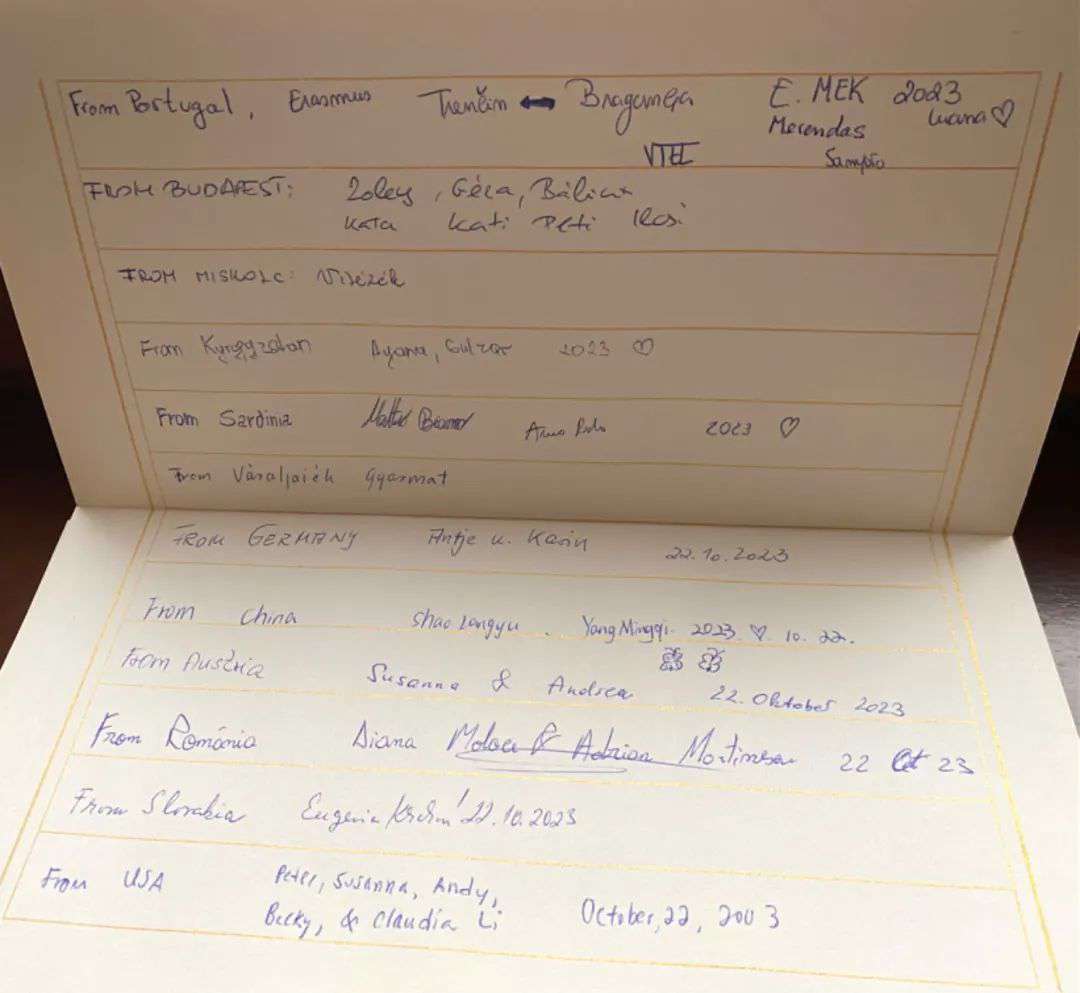 From Portugal, Erasmus Trenčín ↔ Bragança E. MEK 2023
Merendas Luana ♡
VTEL Sampaio
FROM BUDAPEST: Géza, Bálint
Kata Kati Peti
FROM MISKOLC:
From Kyrgyzstan Ayana, Gulzar 2023 ♡
From Sardinia 2023 ♡
From Gyarmat
FROM GERMANY Antje u. Karin 22.10.2023
From China Shao Longyu. Yang Mingqi. 2023. ♡ 10. 22.
From Austria Susanna & Andrea 22. Oktober 2023
From România Diana & Adrian 22 Oct 23
From Slovakia Eugenia 22.10.2023
From USA Peter, Susanna, Andy,
Becky, & Claudia Li October, 22, 2003